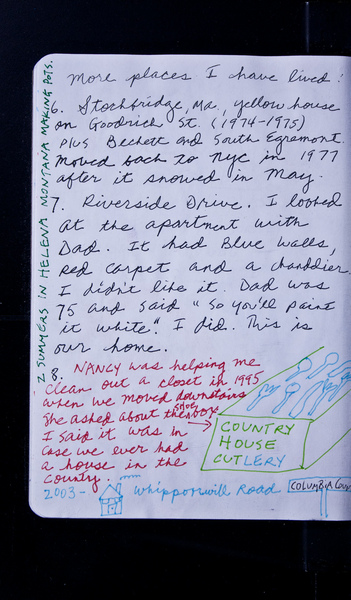 more places I have lived:
6. Stockbridge, Ma., yellow house
on Goodrich St. (1974-1975)
plus Beckett and South Egremont.
Moved back to NYC in 1977
after it snowed in May.
7. Riverside Drive. I looked
at the apartment with
Dad. It had Blue walls,
red carpet and a chanddier.
I didn't like it. Dad was
75 and said "So you'll paint
it white." I did. This is
our home.
8. NANCY was helping me
clean out a closet in 1995
when we moved downstairs
She asked about the shoe box
I said it was in
case we ever had
a house in the
country.
COUNTRY
HOUSE
CUTLERY
2003 - Whipporwill Road
COLUMBIA
2 SUMMERS IN HELENA MONTANA MAKING POTS.